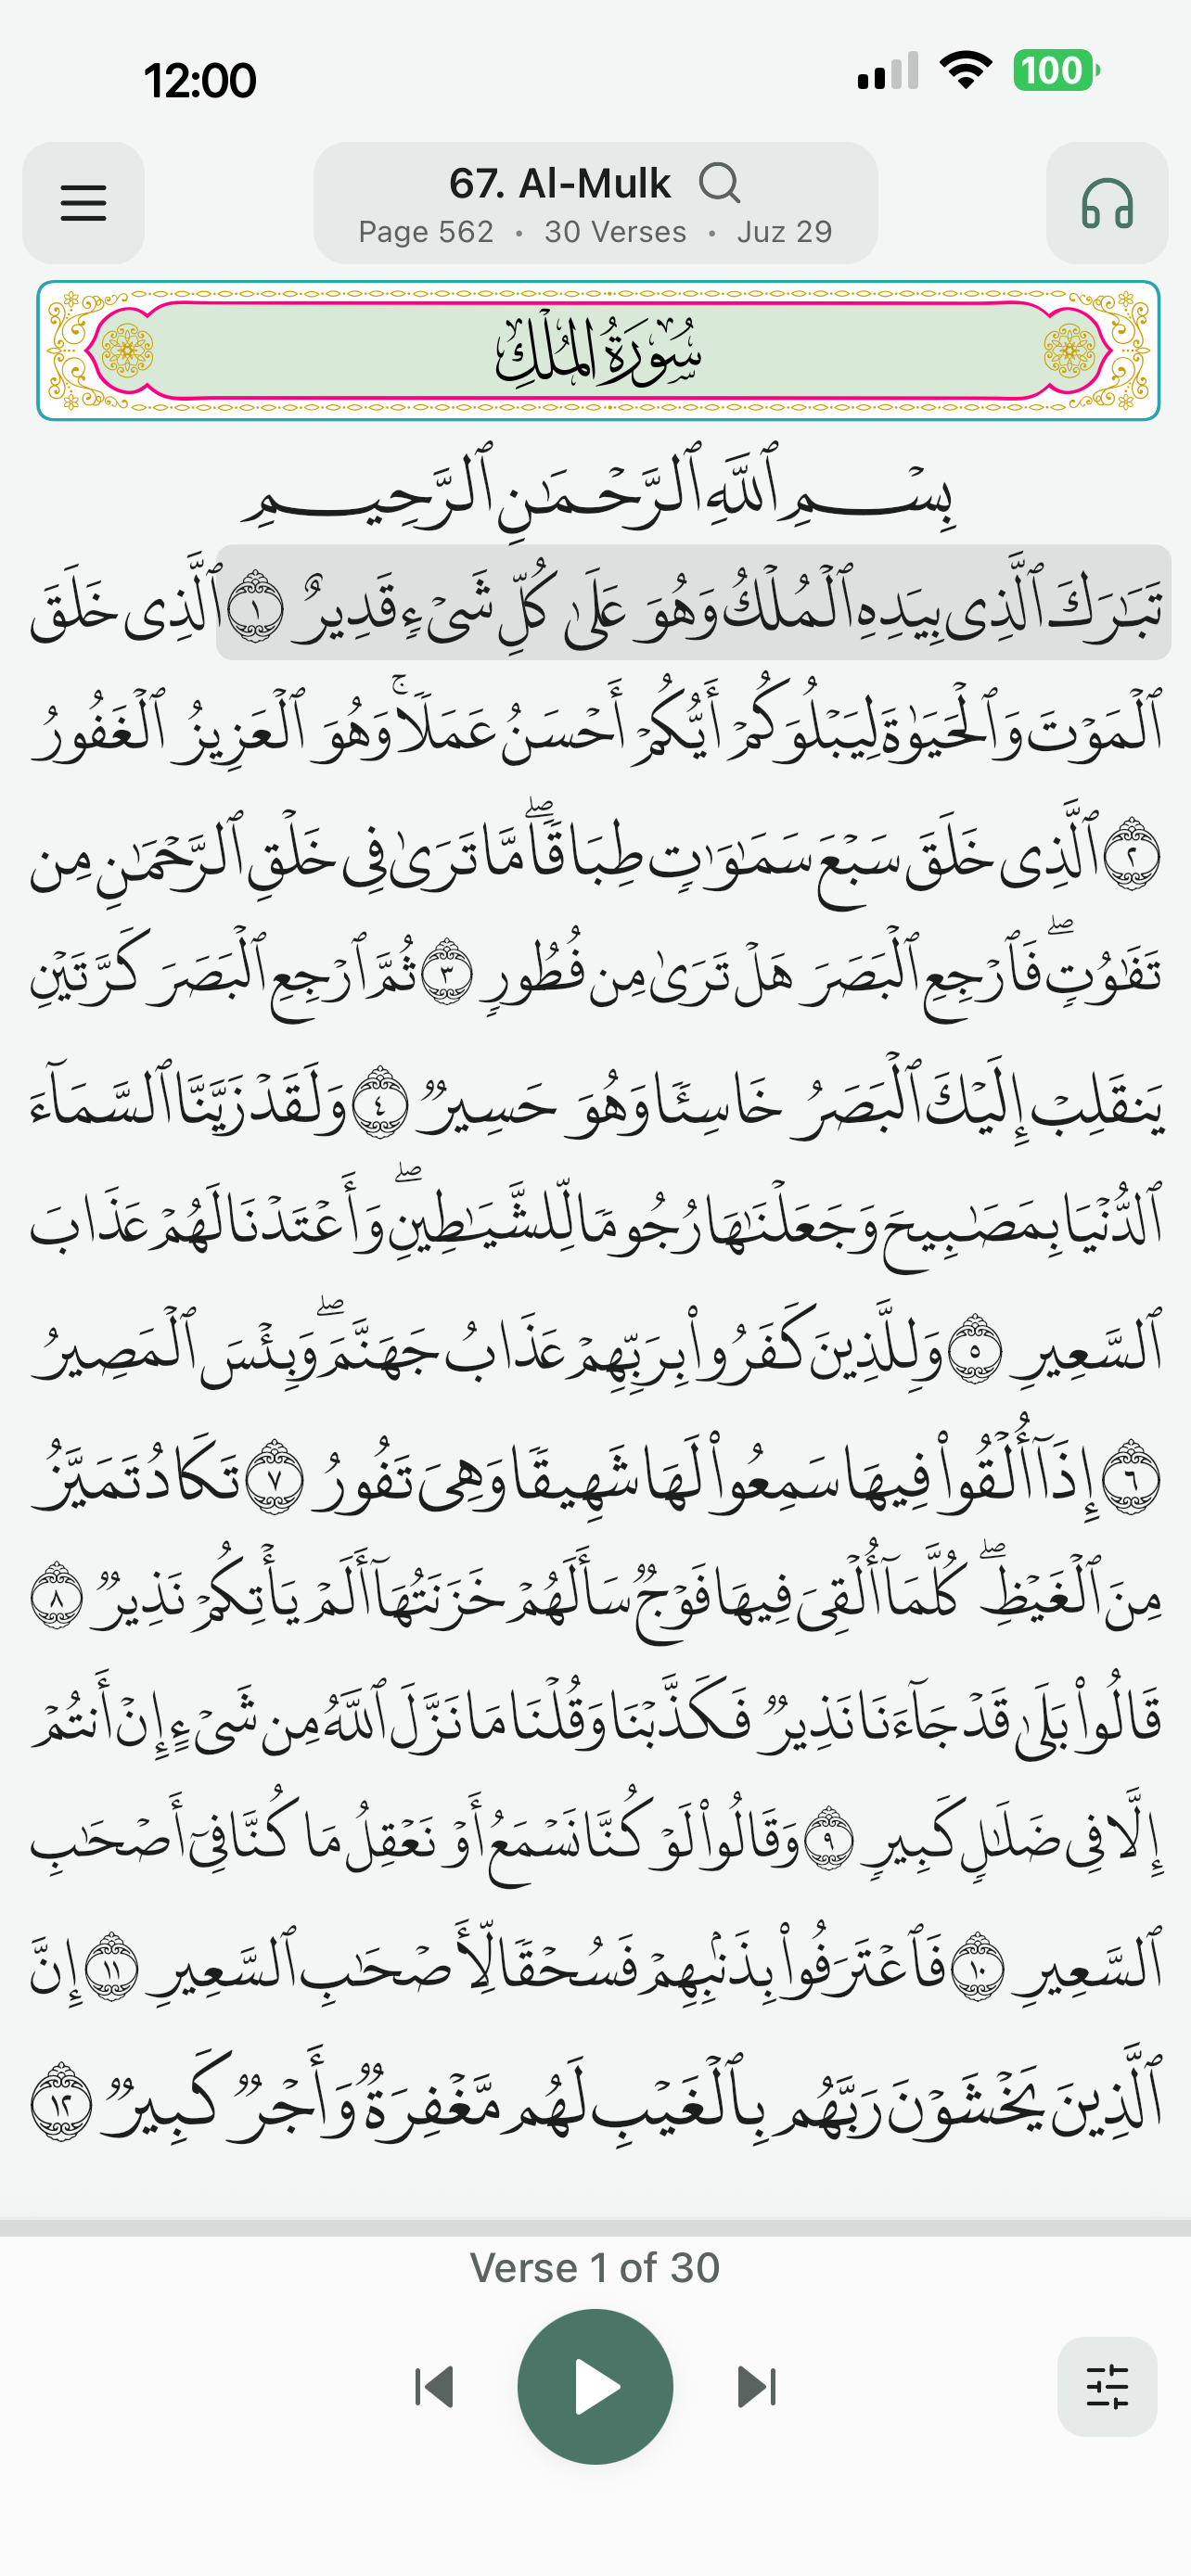 12:00
100
67. Al-Mulk
Page 562 • 30 Verses • Juz 29
سُورَةُ المُلْكِ
بِسْمِ ٱللَّهِ ٱلرَّحْمَٰنِ ٱلرَّحِيمِ
تَبَٰرَكَ ٱلَّذِى بِيَدِهِ ٱلْمُلْكُ وَهُوَ عَلَىٰ كُلِّ شَىْءٍ قَدِيرٌ ١ ٱلَّذِى خَلَقَ
ٱلْمَوْتَ وَٱلْحَيَوٰةَ لِيَبْلُوَكُمْ أَيُّكُمْ أَحْسَنُ عَمَلًا ۚ وَهُوَ ٱلْعَزِيزُ ٱلْغَفُورُ
٢ ٱلَّذِى خَلَقَ سَبْعَ سَمَٰوَٰتٍ طِبَاقًا ۖ مَّا تَرَىٰ فِى خَلْقِ ٱلرَّحْمَٰنِ مِن
تَفَٰوُتٍ ۖ فَٱرْجِعِ ٱلْبَصَرَ هَلْ تَرَىٰ مِن فُطُورٍ ٣ ثُمَّ ٱرْجِعِ ٱلْبَصَرَ كَرَّتَيْنِ
يَنقَلِبْ إِلَيْكَ ٱلْبَصَرُ خَاسِئًا وَهُوَ حَسِيرٌ ٤ وَلَقَدْ زَيَّنَّا ٱلسَّمَآءَ
ٱلدُّنْيَا بِمَصَٰبِيحَ وَجَعَلْنَٰهَا رُجُومًا لِّلشَّيَٰطِينِ ۖ وَأَعْتَدْنَا لَهُمْ عَذَابَ
ٱلسَّعِيرِ ٥ وَلِلَّذِينَ كَفَرُوا۟ بِرَبِّهِمْ عَذَابُ جَهَنَّمَ ۖ وَبِئْسَ ٱلْمَصِيرُ
٦ إِذَآ أُلْقُوا۟ فِيهَا سَمِعُوا۟ لَهَا شَهِيقًا وَهِىَ تَفُورُ ٧ تَكَادُ تَمَيَّزُ
مِنَ ٱلْغَيْظِ ۖ كُلَّمَآ أُلْقِىَ فِيهَا فَوْجٌ سَأَلَهُمْ خَزَنَتُهَآ أَلَمْ يَأْتِكُمْ نَذِيرٌ ٨
قَالُوا۟ بَلَىٰ قَدْ جَآءَنَا نَذِيرٌ فَكَذَّبْنَا وَقُلْنَا مَا نَزَّلَ ٱللَّهُ مِن شَىْءٍ إِنْ أَنتُمْ
إِلَّا فِى ضَلَٰلٍ كَبِيرٍ ٩ وَقَالُوا۟ لَوْ كُنَّا نَسْمَعُ أَوْ نَعْقِلُ مَا كُنَّا فِىٓ أَصْحَٰبِ
ٱلسَّعِيرِ ١٠ فَٱعْتَرَفُوا۟ بِذَنۢبِهِمْ فَسُحْقًا لِّأَصْحَٰبِ ٱلسَّعِيرِ ١١ إِنَّ
ٱلَّذِينَ يَخْشَوْنَ رَبَّهُم بِٱلْغَيْبِ لَهُم مَّغْفِرَةٌ وَأَجْرٌ كَبِيرٌ ١٢
Verse 1 of 30